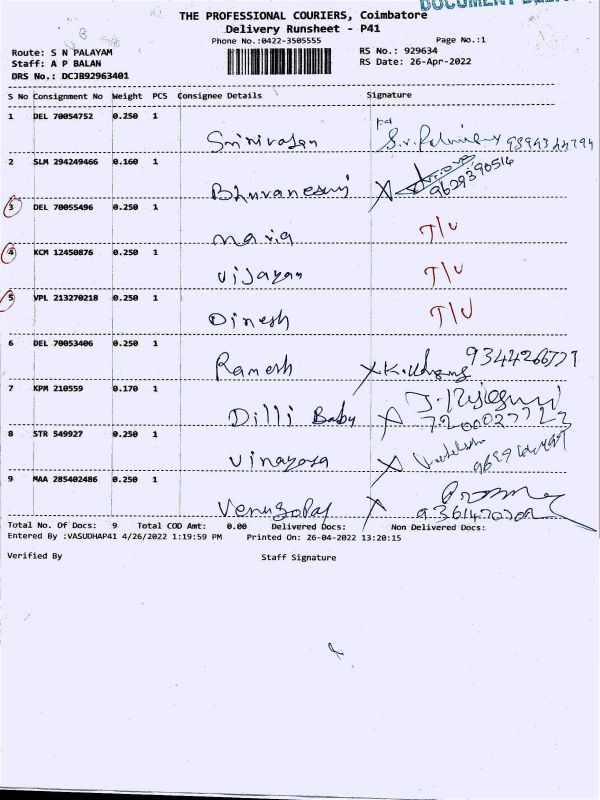 DOCUMENT
THE PROFESSIONAL COURIERS, Coimbatore
Delivery Runsheet - P41
Phone No.:0422-3505555 Page No.:1
Route: S N PALAYAM RS No.: 929634
Staff: A P BALAN RS Date: 26-Apr-2022
DRS No.: DCJB92963401
S No Consignment No Weight PCS Consignee Details Signature
1 DEL 70054752 0.250 1
Srinivasan
2 SLM 294249466 0.160 1
Bhuvaneswari 9629390514
3 DEL 70055496 0.250 1
Maria T/U
4 KCM 12450876 0.250 1
Vijayan T/U
5 VPL 213270218 0.250 1
Dinesh T/U
6 DEL 70053406 0.250 1
Ramesh
7 KPM 210559 0.170 1
Dilli Baby
8 STR 549927 0.250 1
Vinayaga
9 MAA 285402486 0.250 1
Venugopal
Total No. Of Docs: 9 Total COD Amt: 0.00 Delivered Docs: Non Delivered Docs:
Entered By :VASUDHAP41 4/26/2022 1:19:59 PM Printed On: 26-04-2022 13:20:15
Verified By Staff Signature